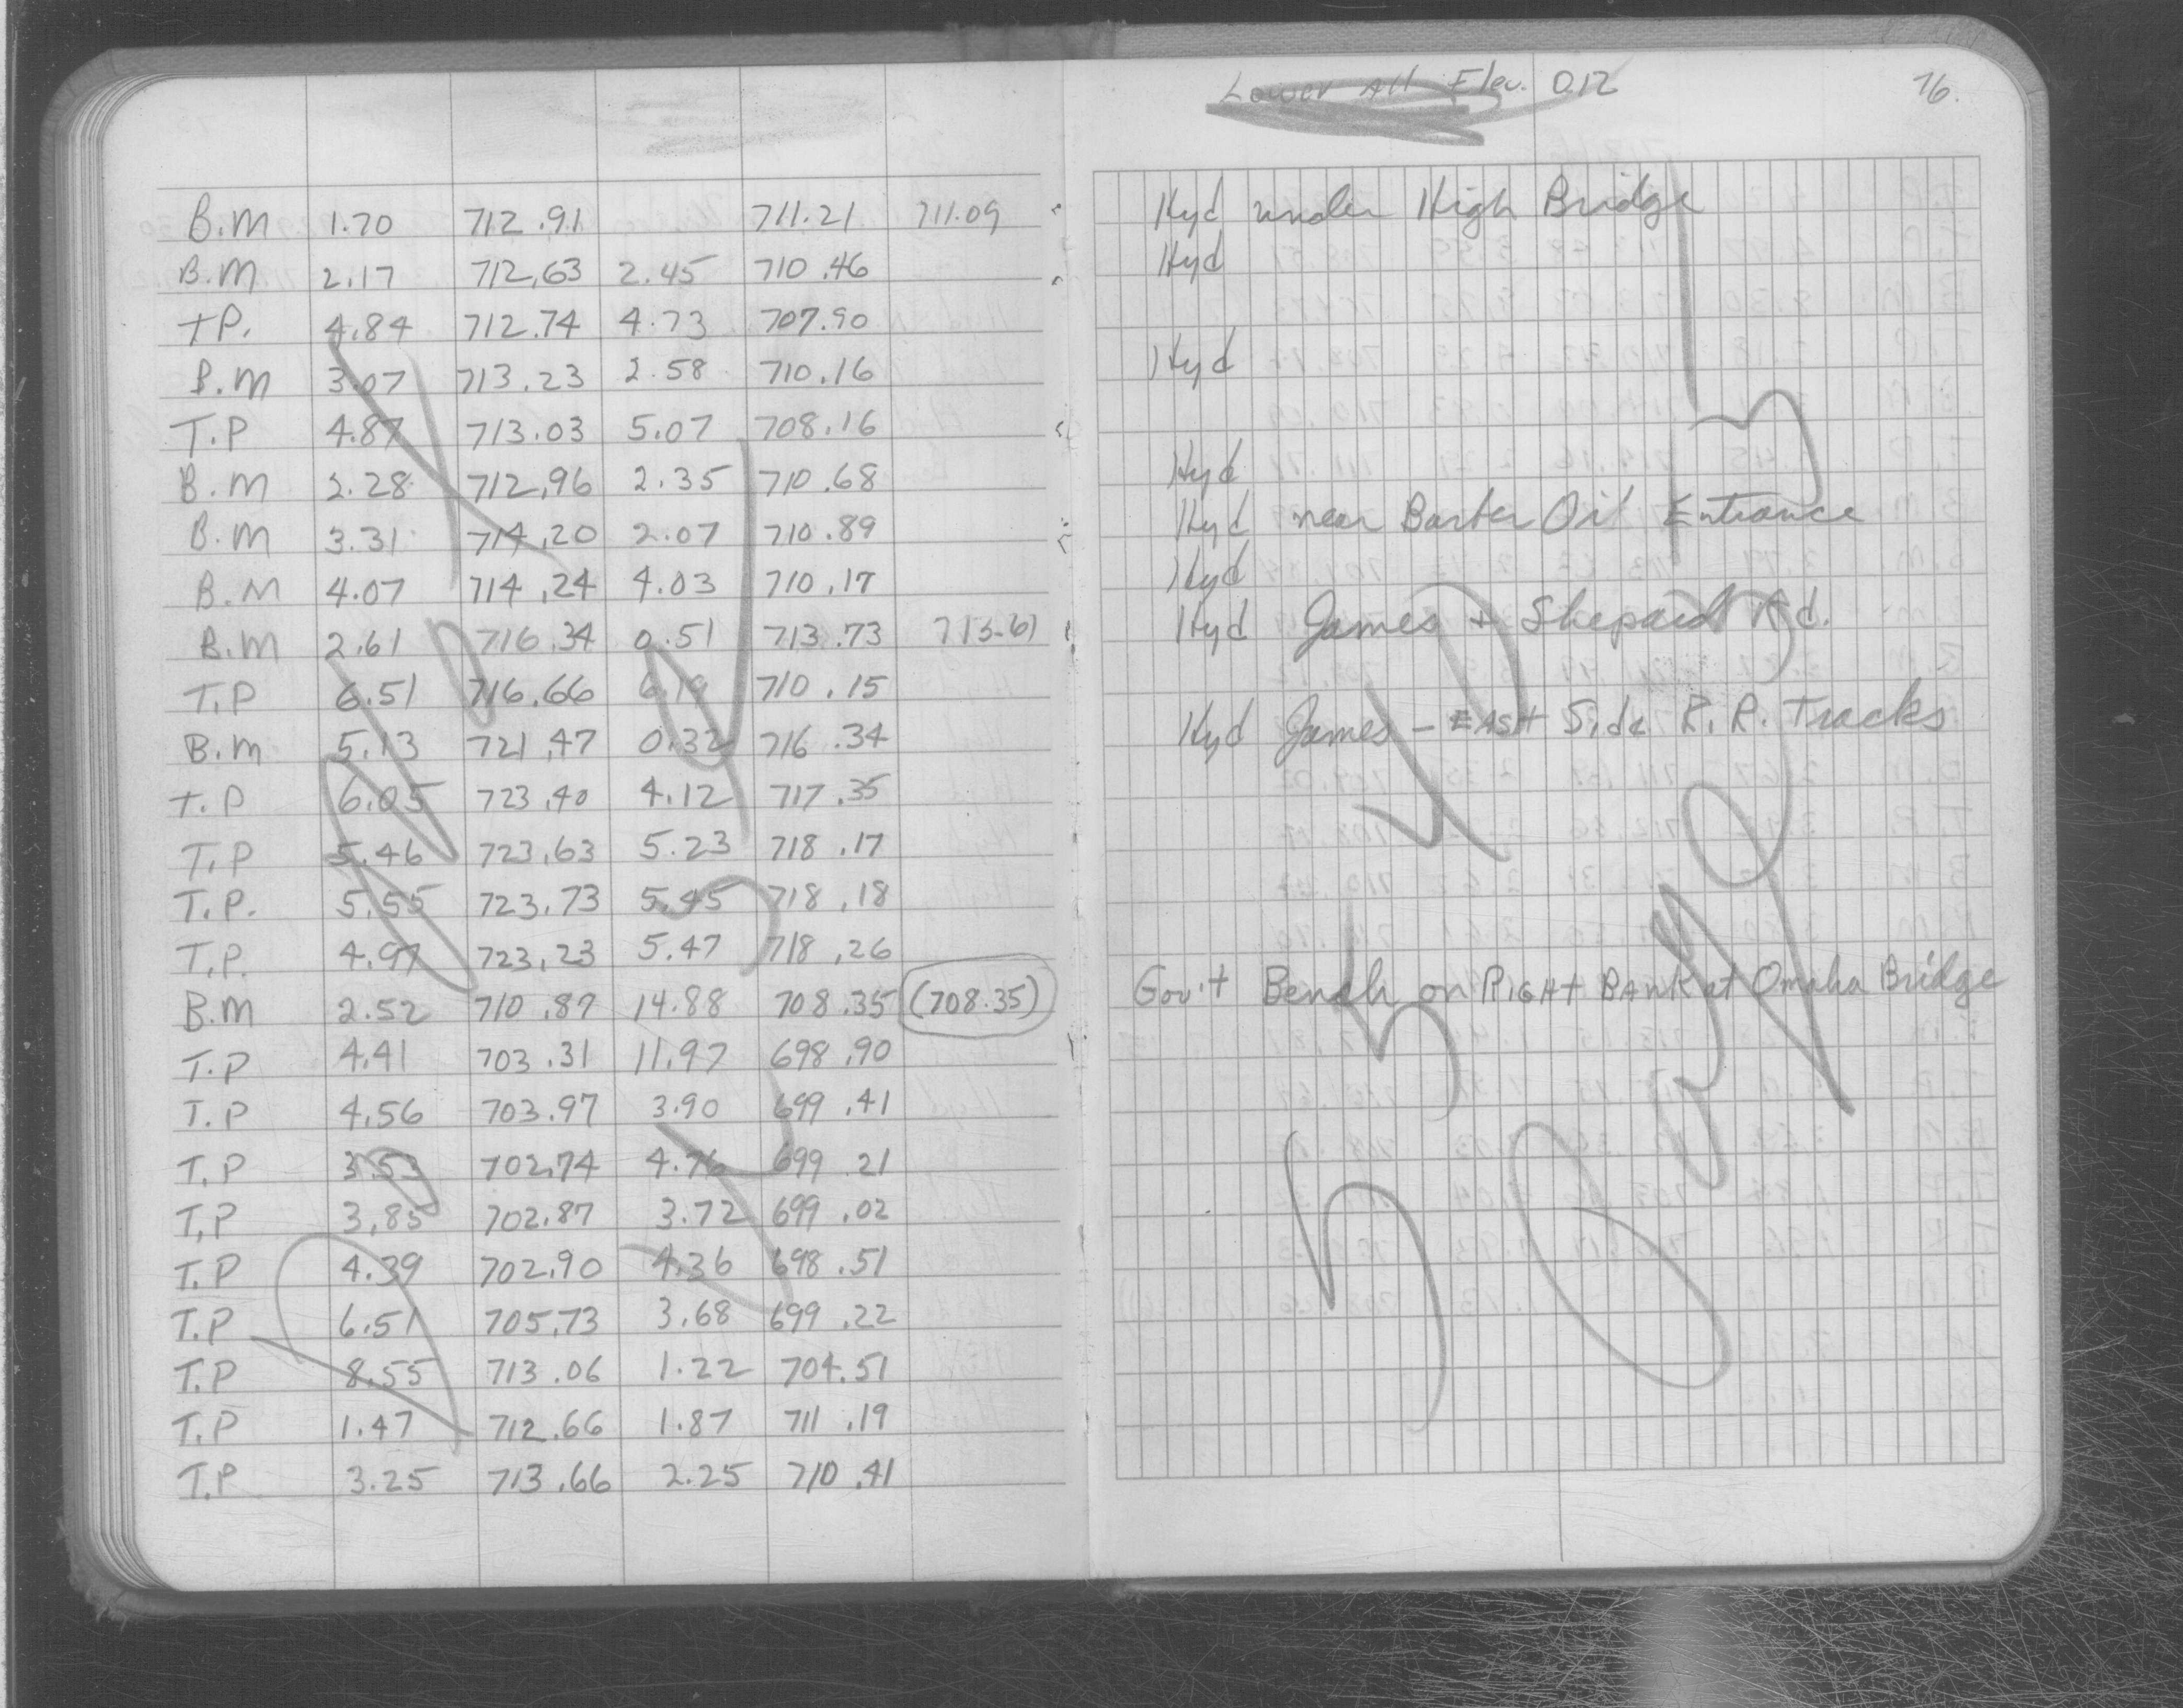 B.M 1.70 712.91 711.21 711.09
B.M 2.17 712.63 2.45 710.46
T.P. 4.84 712.74 4.73 707.90
B.M 3.07 713.23 2.58 710.16
T.P 4.87 713.03 5.07 708.16
B.M 2.28 712.96 2.35 710.68
B.M 3.31 714.20 2.07 710.89
B.M 4.07 714.24 4.03 710.17
B.M 2.61 716.34 0.51 713.73 713.61
T.P 6.51 716.66 6.19 710.15
B.M 5.13 721.47 0.32 716.34
T.P 6.05 723.40 4.12 717.35
T.P 5.46 723.63 5.23 718.17
T.P. 5.55 723.73 5.45 718.18
T.P. 4.97 723.23 5.47 718.26
B.M 2.52 710.87 14.88 708.35 (708.35)
T.P 4.41 703.31 11.97 698.90
T.P 4.56 703.97 3.90 699.41
T.P 3.53 702.74 4.76 699.21
T.P 3.85 702.87 3.72 699.02
T.P 4.39 702.90 4.36 698.51
T.P 6.51 705.73 3.68 699.22
T.P 8.55 713.06 1.22 704.51
T.P 1.47 712.66 1.87 711.19
T.P 3.25 713.66 2.25 710.41
Lower All Elev. 0.12
76.
Hyd under High Bridge
Hyd
Hyd
Hyd
Hyd near Barber Oil Entrance
Hyd
Hyd James + Shepard Rd.
Hyd James - EASt Side R.R. Tracks
Gov't Bench on RIGHt BANK at Omaha Bridge